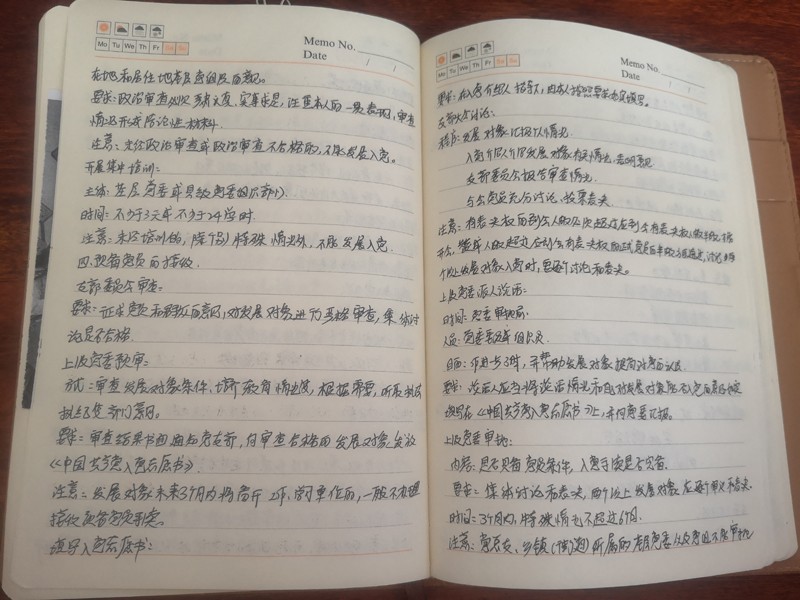 Mo Tu We Th Fr Sa Su
Memo No.
Date / /
在地和居住地基层党组织意见。
要求:政治审查必须严肃认真、实事求是,注重本人的一贯表现,审查
情况形成结论性材料.
注意:未经政治审查或政治审查不合格的,不能发展入党。
开展集中培训:
主体:基层党委或县级党委组织部门.
时间:不少于3天或不少于24学时.
注意:未经培训的,除个别特殊情况外,不能发展入党.
四.预备党员的接收.
支部委员会审查:
要求:征求党员和群众的意见,对发展对象进行严格审查,集体讨
论是否合格.
上级党委预审:
方式:审查发展对象条件、培养教育情况等,根据需要,听取执纪
执法等部门意见。
要求:审查结果书面通知党支部,向审查合格的发展对象发放
《中国共产党入党志愿书》.
注意:发展对象未来3个月内将离开工作、学习单位的,一般不办理
接收预备党员手续。
填写入党志愿书:
Mo Tu We Th Fr Sa Su
Memo No.
Date / /
要求:在入党介绍人指导下,由本人按照要求如实填写。
支部大会讨论:
程序:发展对象汇报个人情况.
入党介绍人介绍发展对象有关情况,表明意见
支部委员会报告审查情况.
与会党员充分讨论,投票表决
注意:有表决权的到会人数必须超过应到会有表决权人数的半数才能
开会,赞成人数超过应到会有表决权的正式党员的半数才能通过,讨论两
个以上发展对象入党时,要逐个讨论和表决。
上级党委派人谈话:
时间:党委审批前.
人员:党委委员或组织员.
目的:作进一步了解,并帮助发展对象提高对党的认识.
要求:谈话人应当将谈话情况和自己对发展对象能否入党的意见如实
填写在《中国共产党入党志愿书》上,并向党委汇报。
上级党委审批:
内容:是否具备党员条件,入党手续是否完备.
要求:集体讨论和表决,两个以上发展对象应逐个审议和表决
时间:3个月内,特殊情况不超过6个月.
注意:党总支、乡镇(街道)所属的基层党委以及党组不能审批